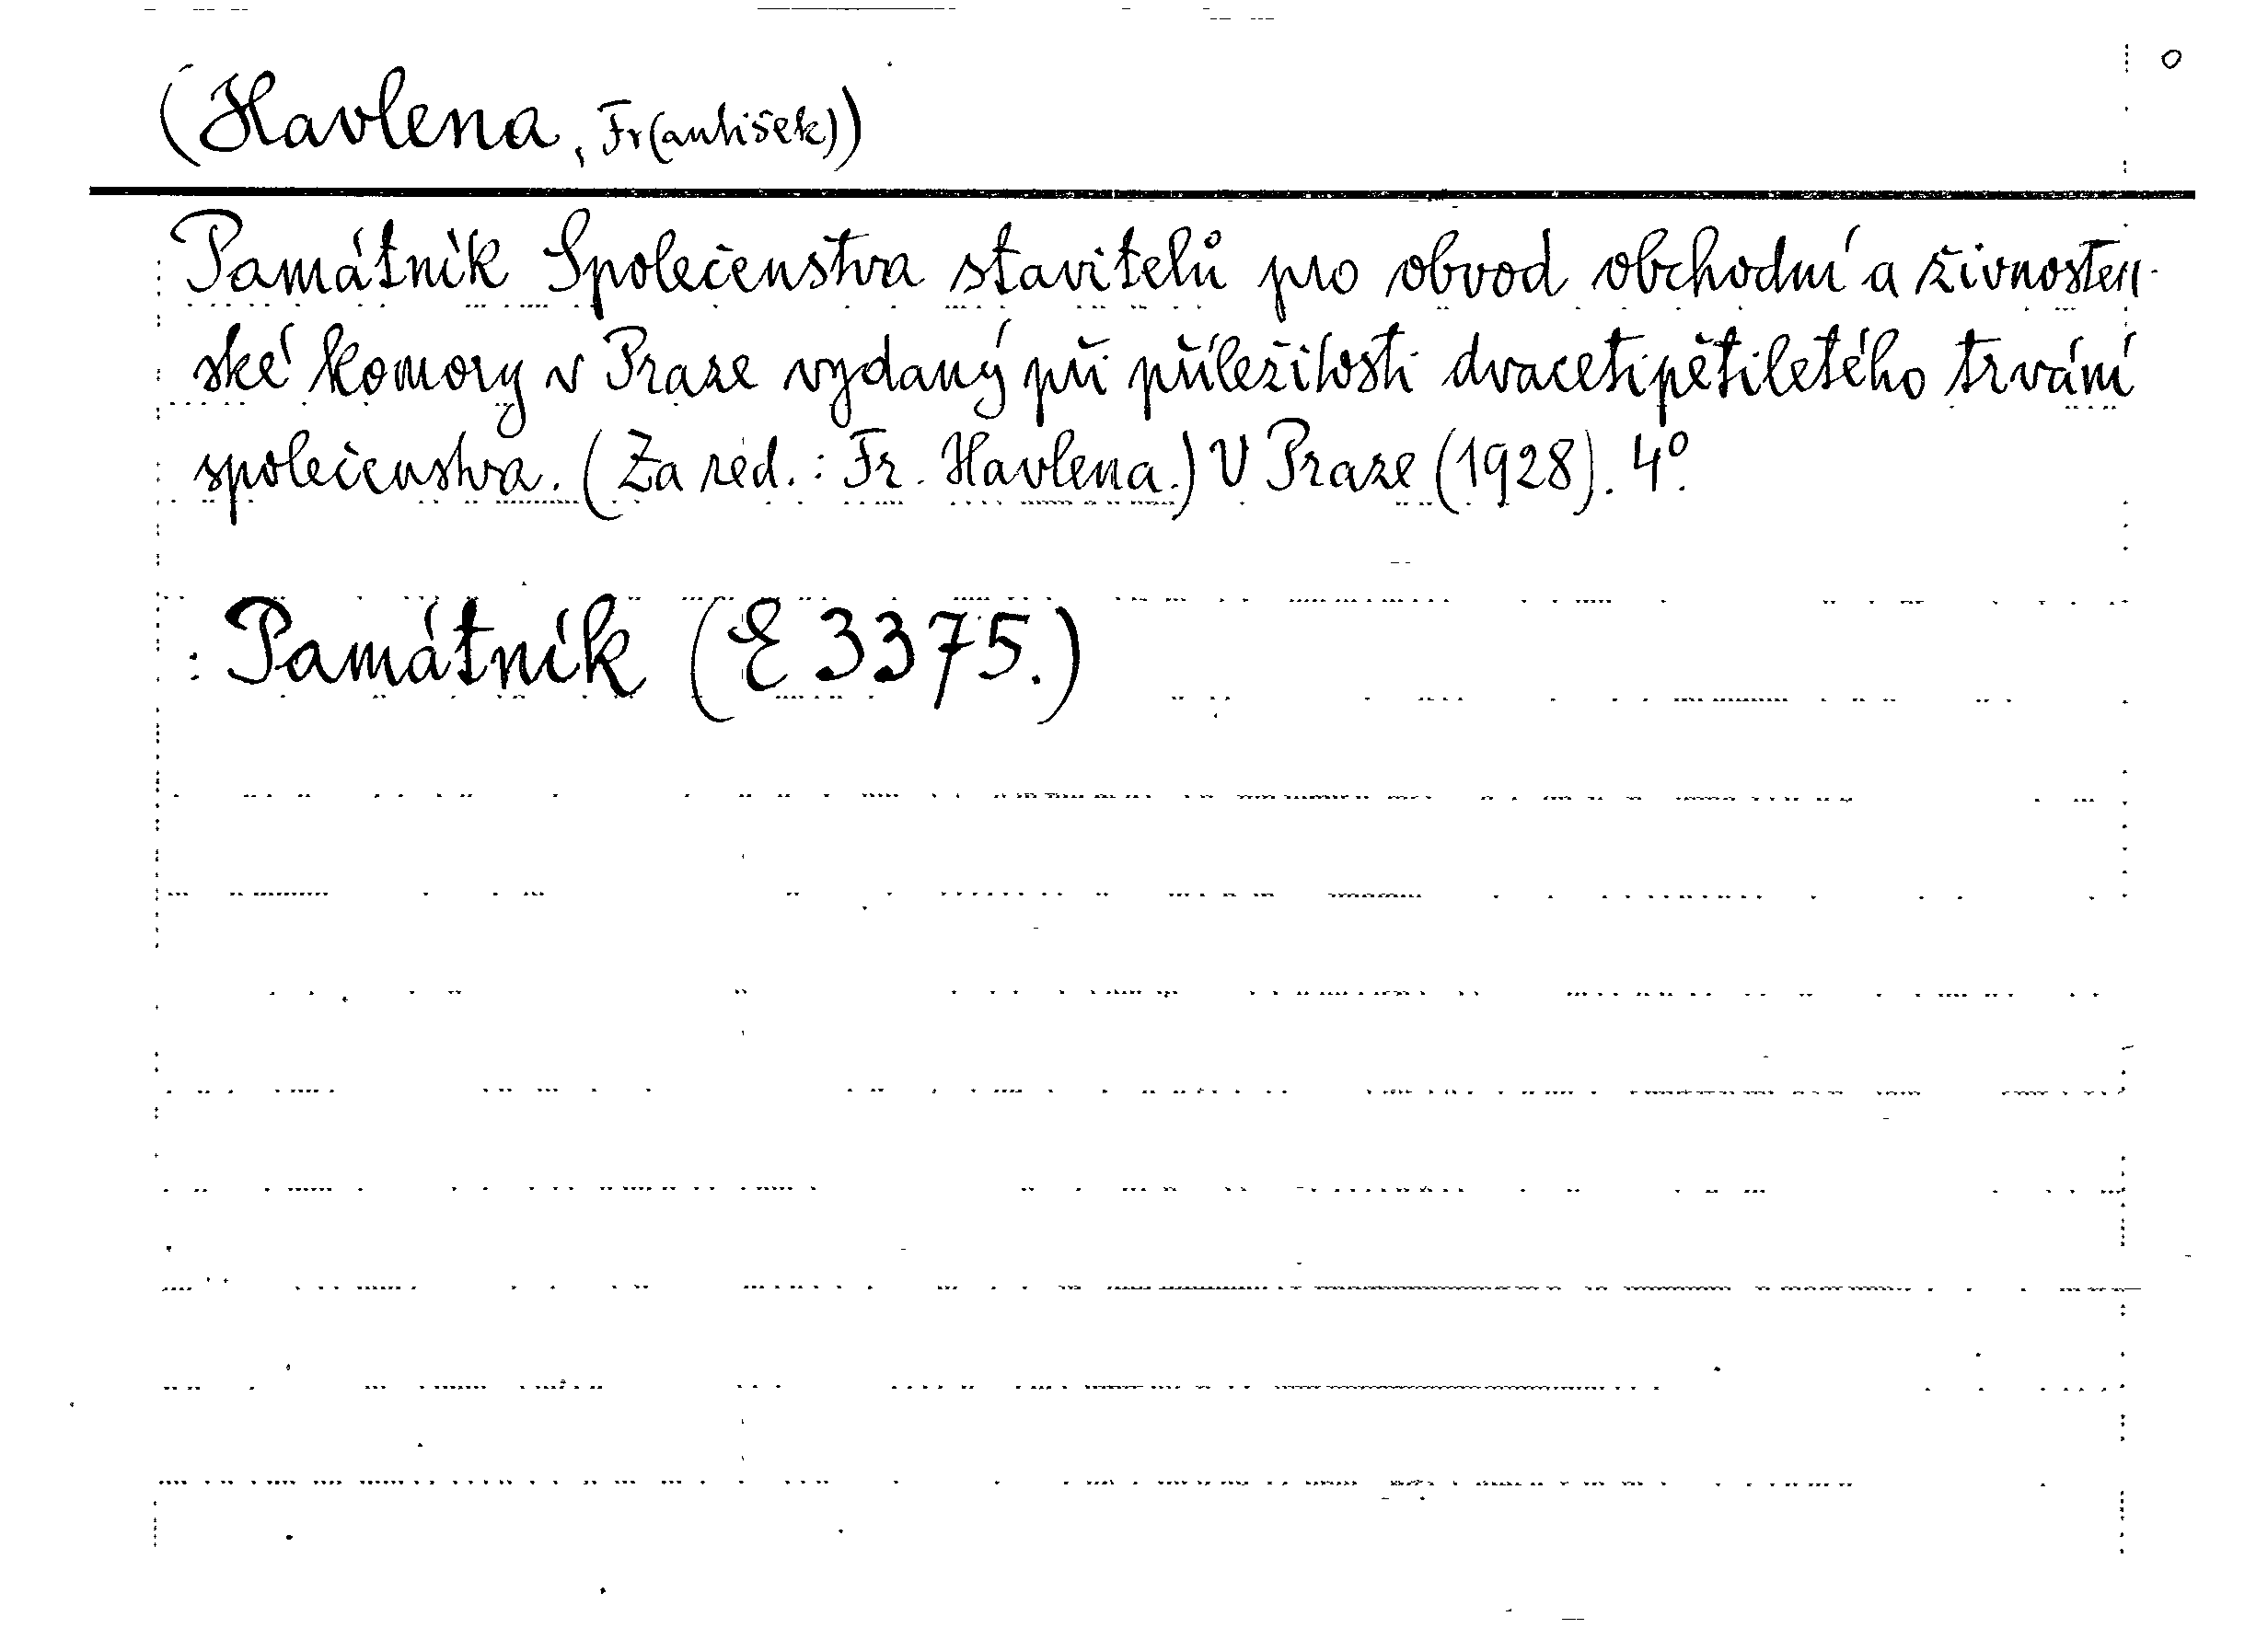 (Havlena, Fr(antišek))
Památník Společenstva stavitelů pro obvod obchodní a živnosten-
ské komory v Praze vydaný při příležitosti dvacetipětiletého trvání
společenstva. (Za red.: Fr. Havlena.) V Praze (1928). 4º.
: Památník (E 3375.)